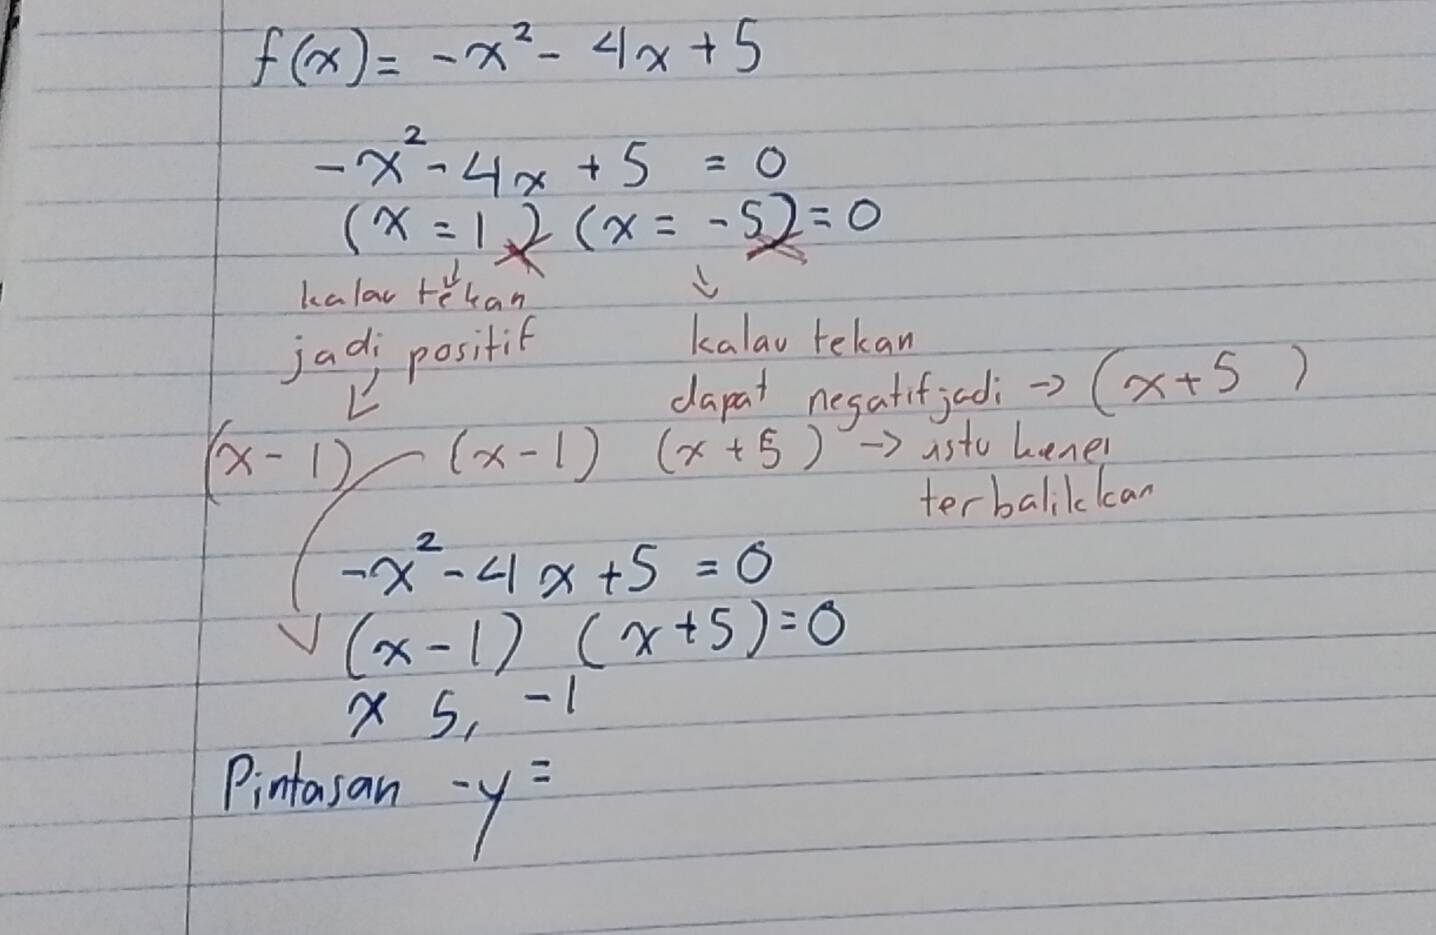 f(x) = -x² - 4x + 5
-x² - 4x + 5 = 0
(x = 1) (x = -5) = 0
kalau tekan
jadi positif
(x - 1)
kalau tekan
dapat negatif jadi → (x + 5)
(x - 1) (x + 5) → kenei
terbalikkan
-x² - 4x + 5 = 0
(x - 1) (x + 5) = 0
x 5, -1
Pintasan -y =